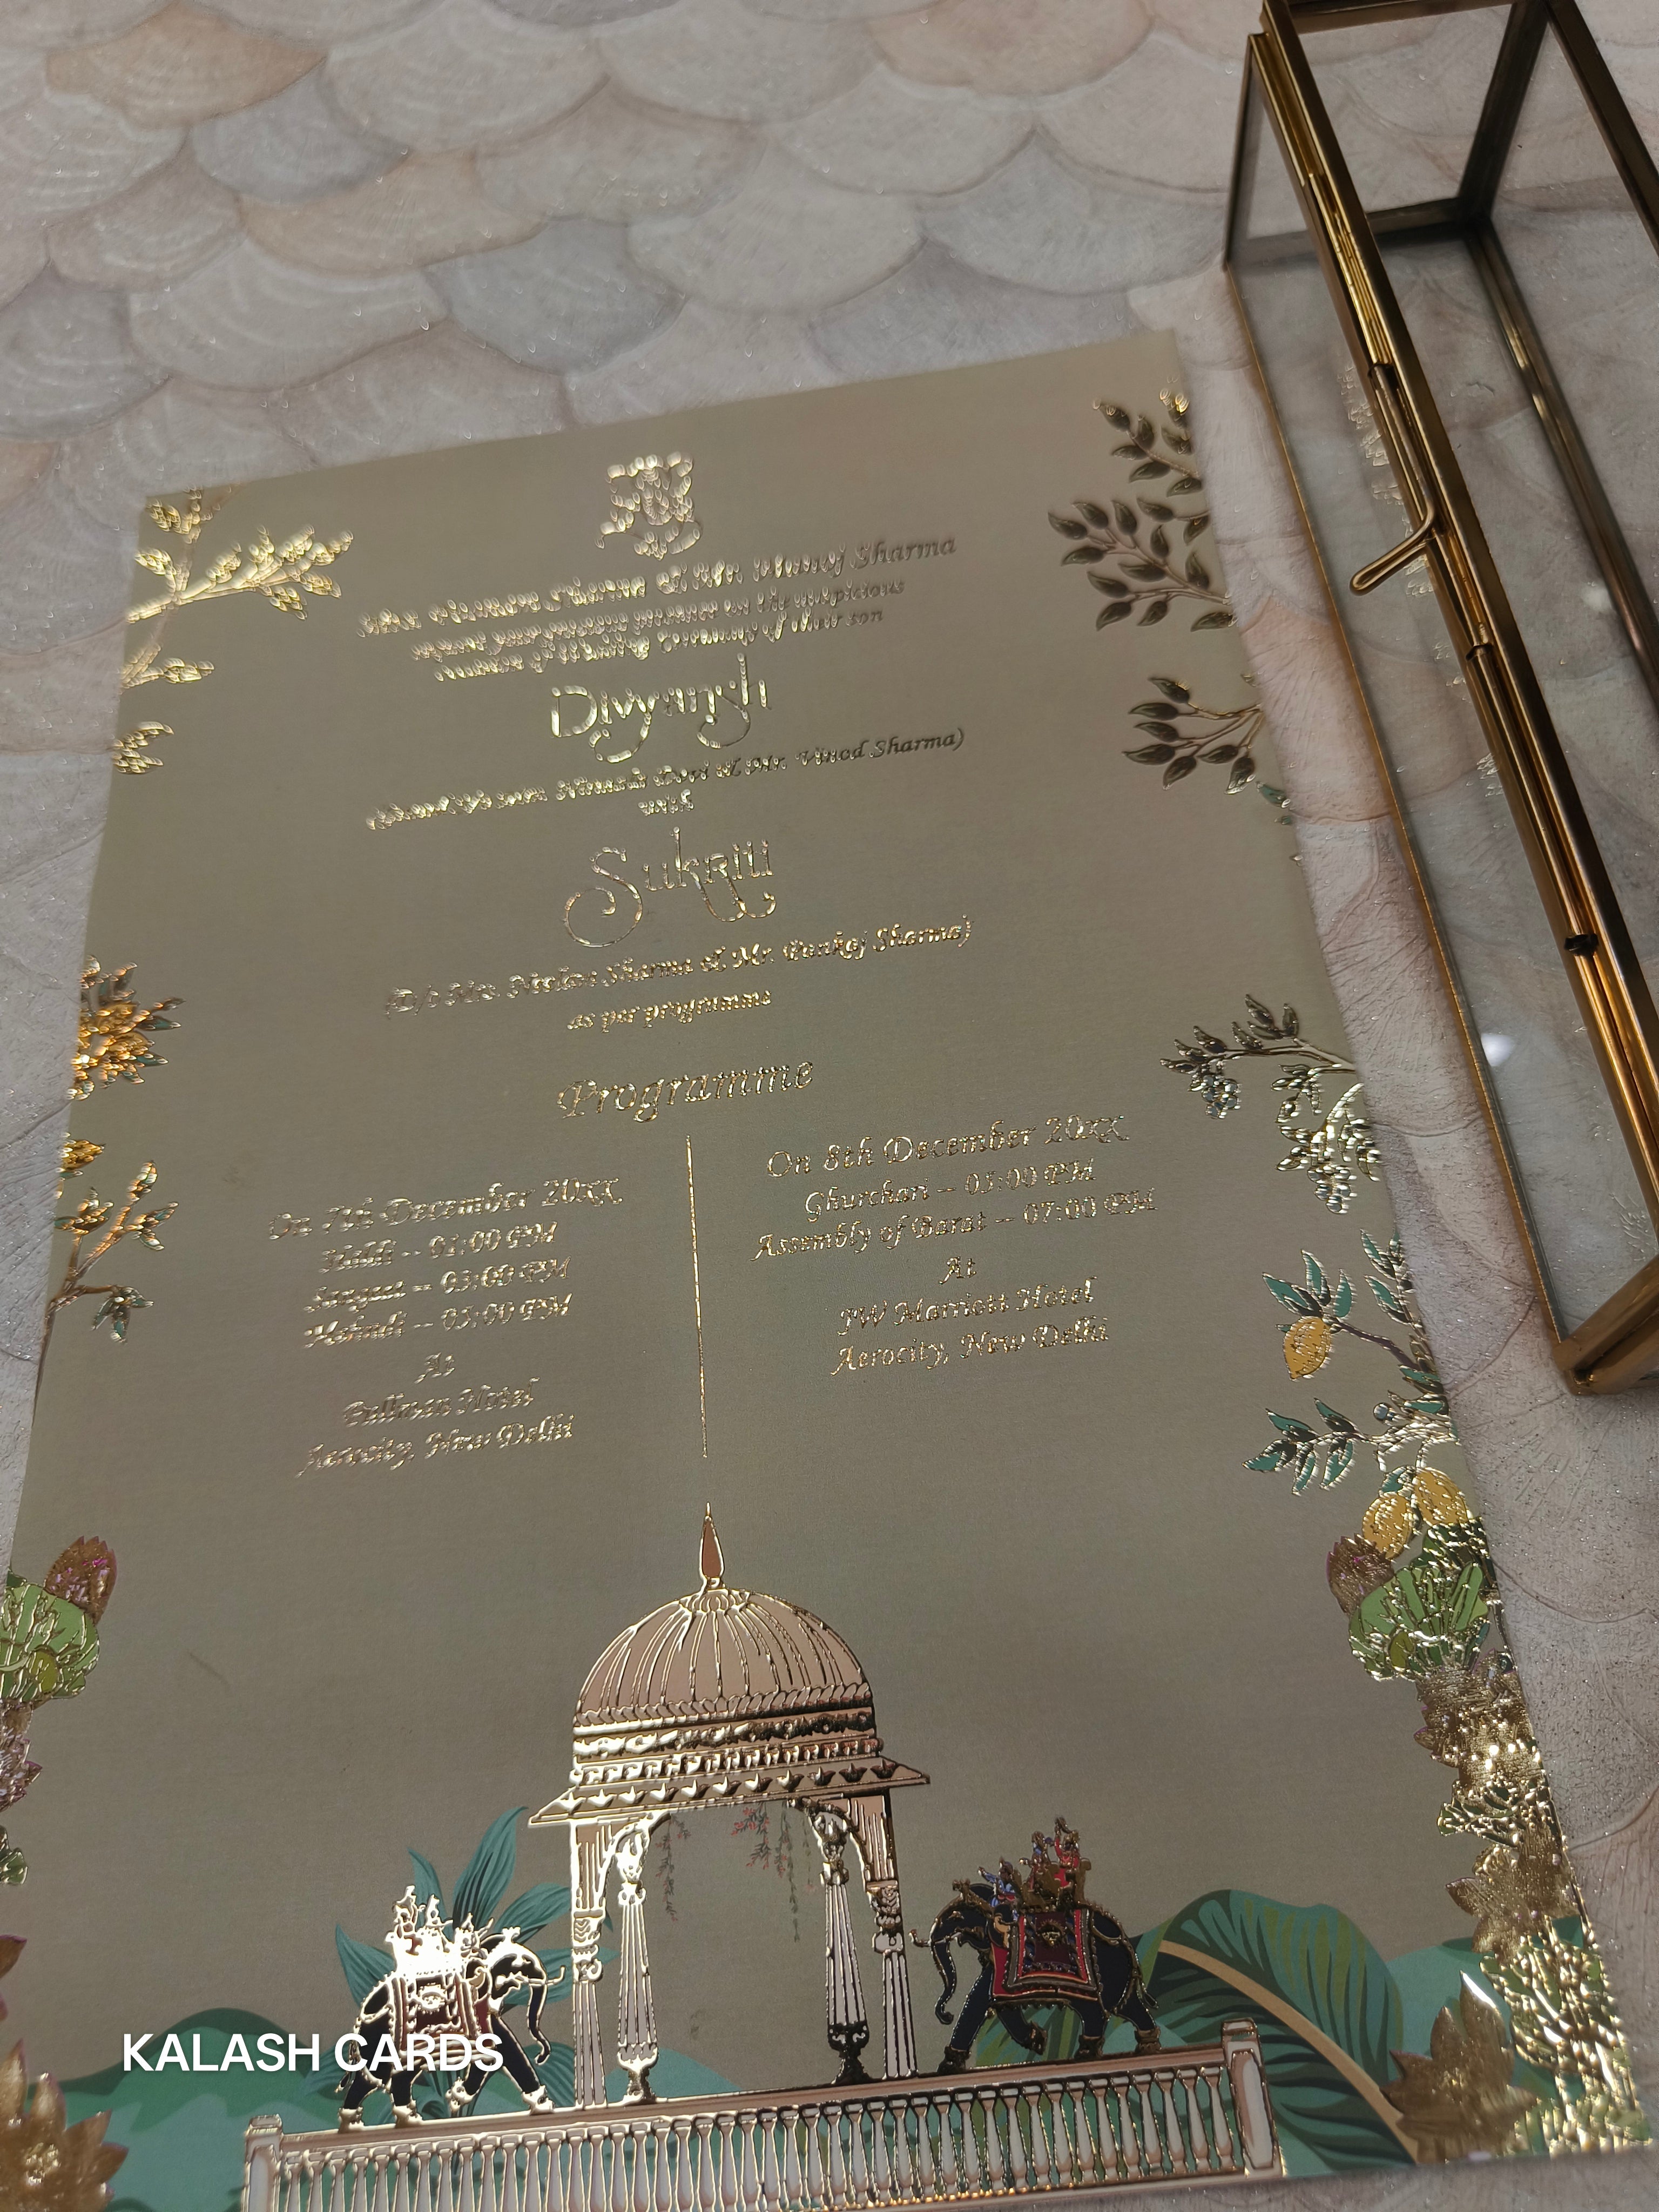 Sharma & Mr. Manoj Sharma
presence on the auspicious
of Wedding Ceremony of their son
Divyansh
Devi & Mr. Vinod Sharma)
with
Sukriti
(D/o Mrs. Neelam Sharma & Mr. Pankaj Sharma)
as per programme
Programme
On 7th December 20XX
Haldi – 01:00 PM
Sangeet – 03:00 PM
Mehndi – 05:00 PM
At
Pullman Hotel
Aerocity, New Delhi
On 8th December 20XX
Ghurchari – 05:00 PM
Assembly of Barat – 07:00 PM
At
JW Marriott Hotel
Aerocity, New Delhi
KALASH CARDS